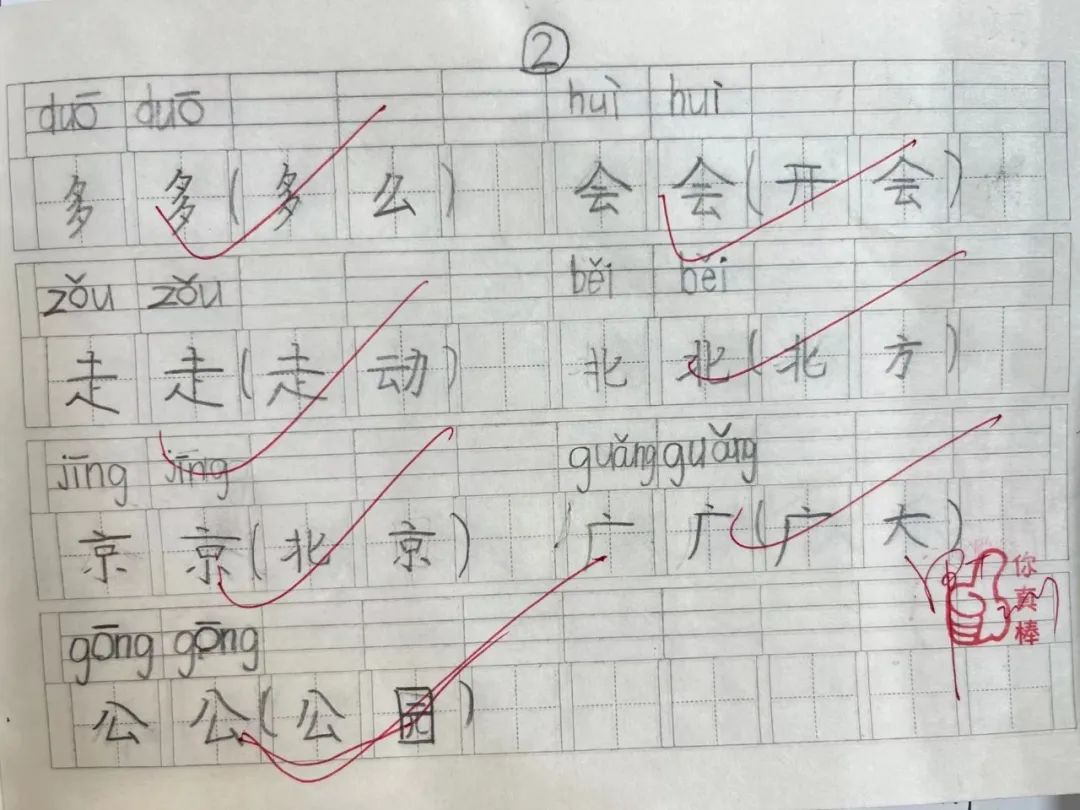 ②
duō duō huì huì
多 多(多 么) 会 会(开 会)
zǒu zǒu běi běi
走 走(走 动) 北 北(北 方)
jīng jīng guǎng guǎng
京 京(北 京) 广 广(广 大)
你真棒
gōng gōng
公 公(公 园)